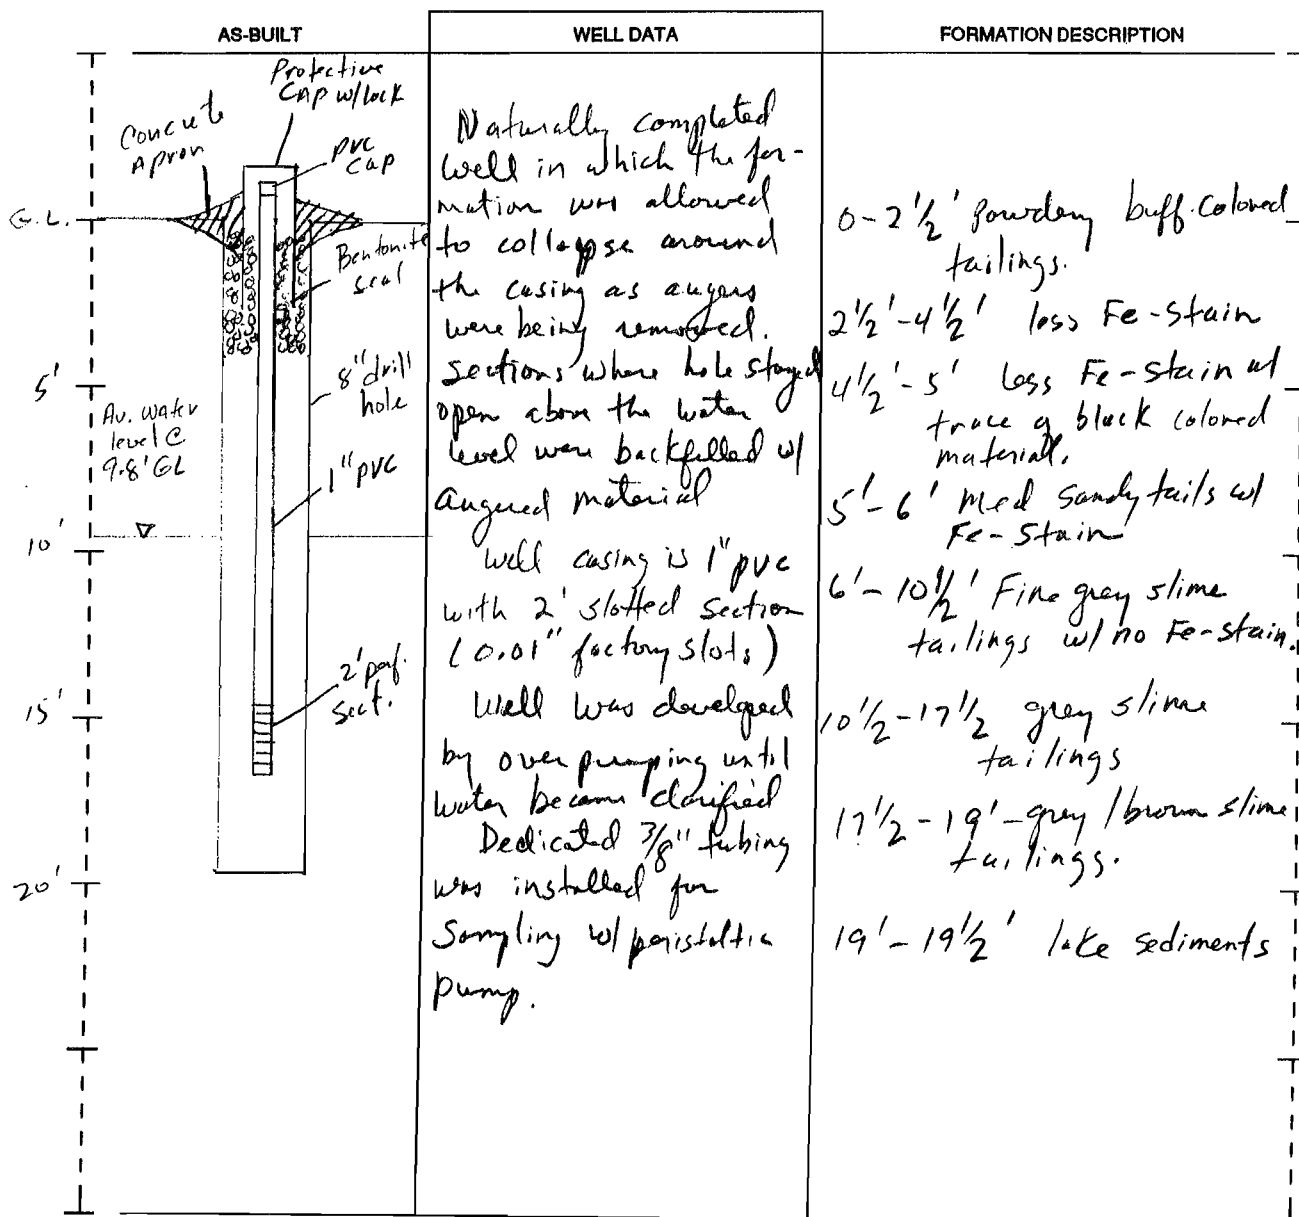 AS-BUILT
WELL DATA
FORMATION DESCRIPTION
Protective
CAP w/lock
Concrete
Apron
PVC
Cap
G.L.
Bentonite
seal
5'
8" drill
hole
Av. water
level @
9.8' GL
1" PVC
10'
2' perf.
Sect.
15'
20'
Naturally completed
well in which the for-
mation was allowed
to collapse around
the casing as augers
were being removed.
Sections where hole stayed
open above the water
level were backfilled w/
augered material
Well casing is 1" pvc
with 2' slotted section
(0.01" factory slots)
Well was developed
by over pumping until
water became clarified
Dedicated 3/8" tubing
was installed for
Sampling w/ peristaltic
pump.
0-2 1/2' Powdery buff-colored
tailings.
2 1/2'-4 1/2' less Fe-Stain
4 1/2'-5' Less Fe-Stain w/
trace of black colored
material.
5'-6' Med Sandy tails w/
Fe-Stain
6'-10 1/2' Fine grey slime
tailings w/ no Fe-stain.
10 1/2-17 1/2 grey slime
tailings
17 1/2-19'-grey/brown slime
tailings.
19'-19 1/2' lake sediments